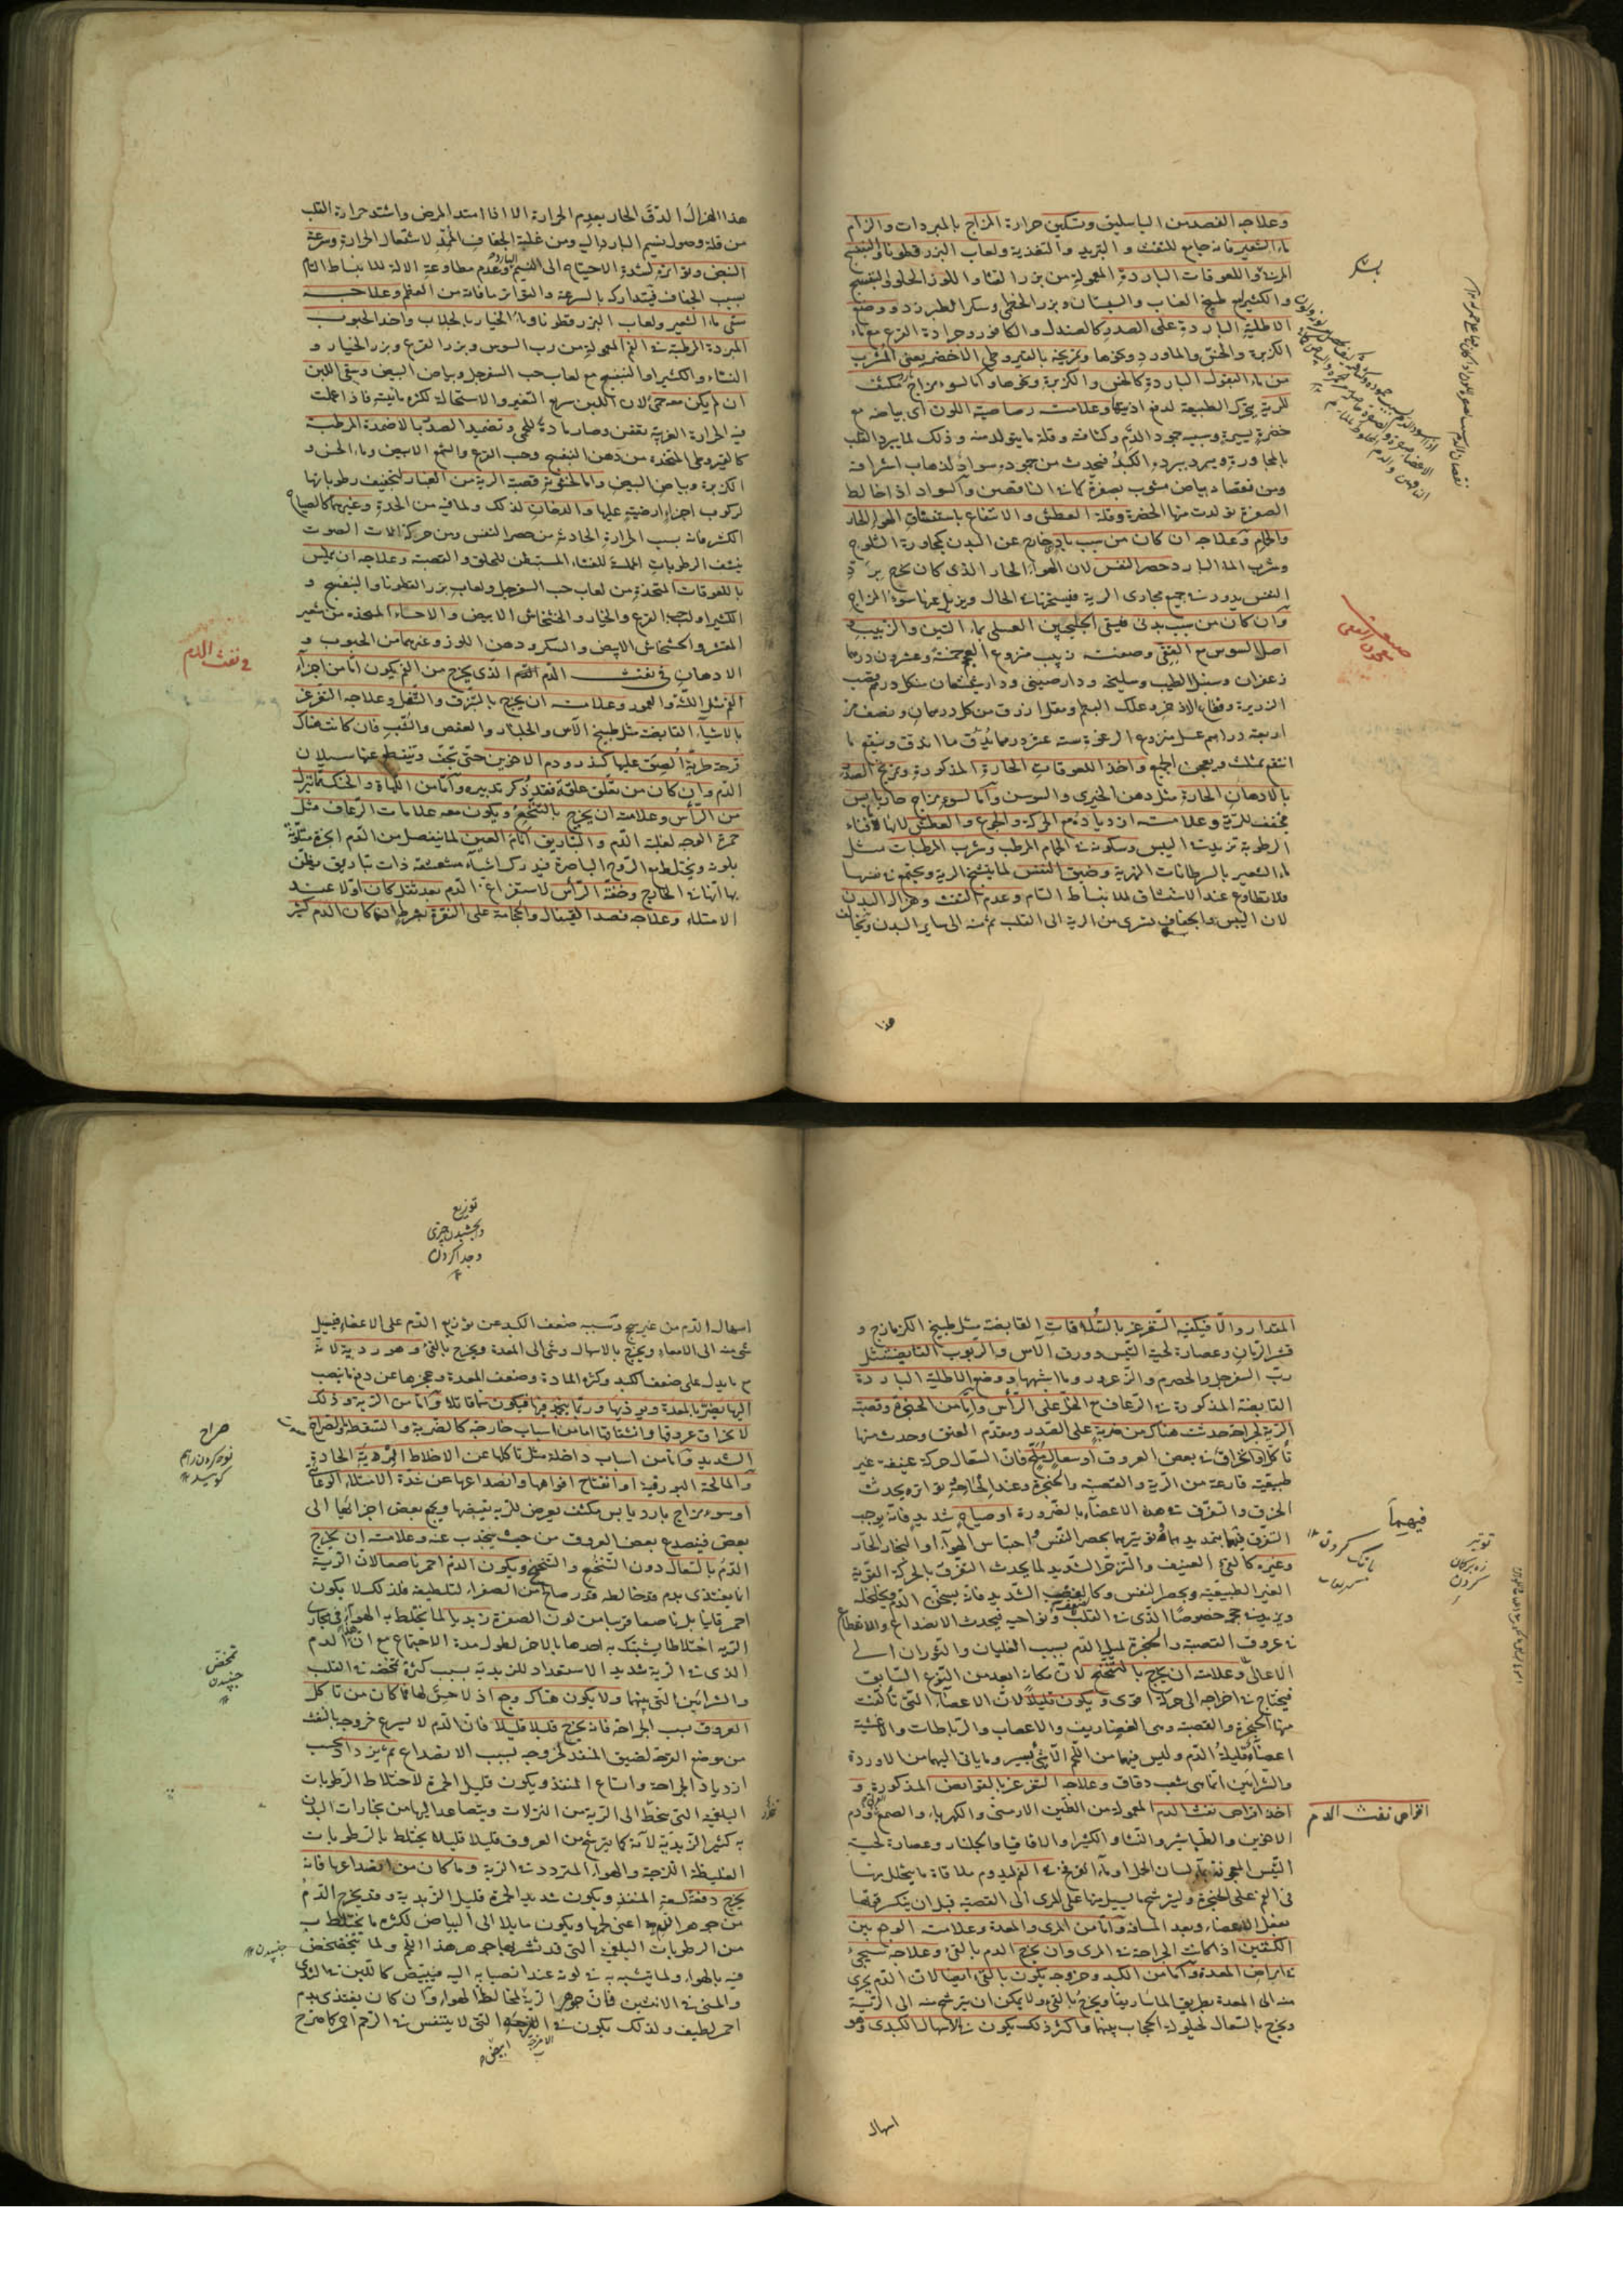 وعلاجه الفصد من الباسليق وتسكين حرارة المزاج بالمبردات والزام
ماء الشعير فانه جامع للنفث والتبريد والتغذية ولعاب البزر قطونا والبنفسج
المربى واللعوقات الباردة المعمولة من بزر القثاء واللوز الحلو والبنفسج
والكثيرا مع طبيخ العناب والسبستان وبزر الخطمى وسكر الطبرزد ووضع
الاطلية الباردة على الصدر كالصندل والكافور وجرادة القرع مع ماء
الكزبرة والخس والماورد ونحوها وتمريخه بالقيروطى الاخضر يعنى المشرب
من ماء البقول الباردة كالخس والكزبرة ونحوها واما لسوء مزاج مكثف
للرية يحرك الطبيعة لدفع اذيتها وعلامته رصاصية اللون اى بياضه مع
خضرة يسيرة وسببه جمود الدم وكثافته وقلة ما يتولد منه وذلك لما يبرد القلب
بالمجاورة ويبرد ببرده الكبد فيحدث من جموده سواد لذهاب اشراقه
ومن نقصانه بياض مشوب بصفرة كما فى الناقصين والسواد اذا خالط
الصفرة تولدت منها الخضرة وقلة العطش والانتفاع باستنشاق الهواء الحار
والحمام وعلاجه ان كان من سبب باد خارج عن البدن كمجاورة الثلوج
وشرب الماء البارد حصر النفس لان الهواء الحار الذى كان يخرج برد
النفس يدور فى جميع مجارى الرية فيسخنها فى الحال ويزيل عنها سوء المزاج
وان كان من سبب بدنى فيسقى الجلنجبين العسلى بماء التين والزبيب و
اصل السوس مع العتيق وصفته زبيب منزوع العجم خمسة وعشرون درهما
زعفران وسنبل الطيب وسليخة ودارصينى ودارشيشعان من كل درهم قصب
الذريرة وفقاح الاذخر وعلك البطم ومقل ازرق من كل درهمان ونصف مر
اربعة دراهم عسل منزوع الرغوة ستة عشر درهما يدق ما اندق وينقع ما
انتقع بمثلث ويعجن الجميع واخذ اللعوقات الحارة المذكورة وتمريخ الصدر
بالادهان الحارة مثل دهن الخيرى والسوسن واما لسوء مزاج حار يابس
مجفف للرية وعلامته ازدياده مع الحركة والجوع والعطش لانها لافناء
الرطوبة تزيد فى اليبس وسكونه فى الحمام المرطب وشرب المرطبات مثل
ماء الشعير بالسرطانات النهرية وضيق النفس لما يتشنج الرية ويجتمع بعضها
فلا تطاوع عند الاستنشاق للانبساط التام وعدم النفث وهزال البدن
لان اليبس والجفاف يسرى من الرية الى القلب ثم منه الى ساير البدن
هذا
هذا الهزال الدق الحار بعدم الحرارة الا اذا امتد المرض واشتد حرارة القلب
من قلة وصول نسيم البارد اليه ومن غلبة الجفاف المعد لاشتعال الحرارة وسرعة
النبض وتواتره لشدة الاحتياج الى النسيم البارد وعدم مطاوعة الالة للانبساط التام
بسبب الجفاف فيتدارك بالسرعة والتواتر ما فاته من العظم وعلاجه
سقى ماء الشعير ولعاب البزر قطونا وماء الخيار بالجلاب واخذ الحبوب
المبردة المرطبة فى الفم المعمولة من رب السوس وبزر القرع وبزر الخيار و
النشاء والكثيرا والبنفسج مع لعاب حب السفرجل وبياض البيض وسقى اللبن
ان لم يكن معه حمى لان اللبن سريع التغير والاستحالة لكثرة مائيته فاذا عملت
فيه الحرارة الغريبة تعفن وصار مادة للحمى وتضميد الصدر بالاضمدة المرطبة
كالقيروطى المتخذة من دهن البنفسج وحب القرع والشمع الابيض وماء الخس و
الكزبرة وبياض البيض واما لخشونة قصبة الرية من الغبار لتجفيف رطوباتها
لركوب اجزاء ارضية عليها والدخان لذلك ولما فيه من الحدة وغيرهما كالصياح
الكثير فانه بسبب الحرارة الحادثة من حصر النفس ومن حركة الات الصوت
ينشف الرطوبات المملسة للغشاء المستبطن للحلق والقصبة وعلاجه ان يملس
باللعوقات المتخذة من لعاب حب السفرجل ولعاب بزر القطونا والبنفسج و
الكثيرا ولب حب القرع والخيار والخشخاش الابيض والاحساء المتخذة من شعير
المقشر والخشخاش الابيض والسكر ودهن اللوز وغيرهما من الحبوب و
الادهان فى نفث الدم الدم الذى يخرج من الفم يكون اما من اجزاء
الفم مثل اللثة والعمور وعلامته ان يخرج بالبزق والتفل وعلاجه التغرغر
بالاشياء القابضة مثل طبيخ الآس والجلنار والعفص والشب فان كانت هناك
قرحة طرية الصق عليها كندر ودم الاخوين حتى تجف وتنقطع عنها سيلان
الدم وان كان من تعلق علقة فقد ذكر تدبيره واما من اللهاة والحنك بما ينزل
من الرأس وعلامته ان يخرج بالتنخع ويكون معه علامات الرعاف مثل
حمرة الوجه لغلبة الدم والتباريق امام العين لما ينفصل من الدم ابخرة متلونة
بلونه ويختلط مع الروح الباصرة فيدرك اشياء مشعشعة ذات تباريق يظن
بها انها فى الخارج وخفة الرأس لاستفراغ الدم بعد ثقل كان اولا عند
الامتلاء وعلاجه فصد القيفال والحجامة على النقرة بشرط ان كان الدم كثير
فى نفث الدم
المقدار والا فيكفيه التغرغر بالسلاقات القابضة مثل طبيخ الكزمازج و
قشر الرمان وعصارة لحية التيس وورق الآس والربوب القابضة مثل
رب السفرجل والحصرم والزعرور وما اشبهها ووضع الاطلية الباردة
القابضة المذكورة فى الرعاف مع الخل على الرأس واما من الحنجرة وقصبة
الرية لجراحة حدثت هناك من ضربة على الصدر ومقدم العنق وحدث منها
تأكل او انخراق فى بعض العروق او سعال ملح فان السعال حركة عنيفة غير
طبيعية قارعة من الرية والقصبة والحنجرة وعند الحاحه وتواتره يحدث
الخرق والتفرق فى هذه الاعضاء بالضرورة او صياح شديد فانه يوجب
التفرق فيهما بتمديدهما وتوتيرهما بحصر النفس واحتباس الهواء او البخار الحار
وغيره كالقئ العنيف والتزحر الشديد لما يحدث التفرق بالحركة القوية
الغير الطبيعية وبحصر النفس وكالغضب الشديد فانه يسخن الدم ويخلخله
ويزيد فى حجمه خصوصا الذى فى القلب ونواحيه فيحدث الانصداع والانقطاع
فى عروق القصبة والحنجرة لميل الدم بسبب الغليان والثوران الى
الاعالى وعلامته ان يخرج بالتنحنح لان مكانه ابعد من النوع السابق
فيحتاج فى اخراجه الى حركة اقوى ويكون قليلا لان الاعضاء التى تألفت
منها الحنجرة والقصبة وهى الغضاريف والاعصاب والرباطات والاغشية
اعضاء قليلة الدم وليس فيهما من اللحم الا شئ يسير وما ياتى اليهما من الاوردة
والشرايين انما هى شعب دقاق وعلاجه التغرغر بالقوابض المذكورة و
اخذ اقراص نفث الدم المعمولة من الطين الارمنى والكهربا والصمغ ودم
الاخوين والطباشير والنشا والكثيرا والاقاقيا والجلنار وعصارة لحية
التيس المعجونة بماء لسان الحمل او ماء الفرفخ فى الفم ليدوم ملاقاة ما يتحلل منها
فى الفم على الحنجرة وليترشح ما يسيل منها على المرى الى القصبة قبل ان ينكسر قوتها
بفعل الاعضاء وبعد المسافة واما من المرى والمعدة وعلامته الوجع بين
الكتفين اذا كانت الجراحة فى المرى وان يخرج الدم بالقئ وعلاجه سيجئ
فى امراض المعدة واما من الكبد وخروجه يكون بالقئ ايضا لان الدم يجرى
منه الى المعدة بطريق الماساريقا ويخرج بالقئ ولا يمكن ان يترشح منه الى الرية
ويخرج بالسعال لحيلولة الحجاب بينهما واكثر ذلك يكون فى الاسهال الكبدى وهو
فيهما
توتير
اقراص نفث الدم
اسهال
توزيع
وبخشيدن چيزى
وجدا كردن
اسهال الدم من غير سحج وسببه ضعف الكبد عن توزيع الدم على الاعضاء فيسيل
شئ منه الى الامعاء ويخرج بالاسهال وشئ الى المعدة ويخرج بالقئ وهو ردية لانه
مع ما يدل على ضعف الكبد وكثرة المادة وضعف المعدة وعجزها عن دفع ما ينصب
اليها يضر بالمعدة ويوذيها وربما يجمد فيها فيكون سما قاتلا واما من الرية وذلك
لانخراق عروقها وانشقاقها اما من اسباب خارجة كالضربة والسقطة والصراخ
الشديد واما من اسباب داخلة مثل تاكلها عن الاخلاط المرية الحادة
والمالحة البورقية او انفتاح افواهها وانصداعها عن شدة الامتلاء الوعائى
او سوء مزاج بارد يابس مكثف يعرض للرية فيقبضها ويجمع بعض اجزائها الى
بعض فينصدع بعض العروق من حيث ينجذب عنه وعلامته ان يخرج
الدم بالسعال دون التنخع والتنحنح ويكون الدم احمر ناصعا لان الرية
انما يغتذى بدم قد خالطه قدر صالح من الصفراء لتلطيفه فلذلك لا يكون
احمر قانيا بل ناصعا قريبا من لون الصفرة زبديا لما يختلط به الهواء فى مجارى
الرية اختلاطا يشتبك به احدهما بالاخر لطول مدة الاجتماع مع ان هذا الدم
الذى فى الرية شديد الاستعداد للزبدية بسبب كثرة تخضخضه فى القلب
والشرايين التى بينهما ولا يكون هناك وجع اذ لا حس لها فما كان من تاكل
العروق بسبب الجراحة فانه يخرج قليلا قليلا فان الدم لا يسرع خروجه بالنفث
من موضع القرحة لضيق المنفذ لخروجه بسبب الانصداع ثم يزداد بحسب
ازدياد الجراحة واتساع المنفذ ويكون قليل الحمرة لاختلاط الرطوبات
البلغمية التى تتحلب الى الرية من النزلات ويتصاعد اليها من بخارات البدن
به كثير الزبدية لانه كما يترشح من العروق قليلا قليلا يختلط بالرطوبات
الغليظة اللزجة والهواء المتردد فى الرية وما كان من انصداعها فانه
يخرج دفعة لسعة المنفذ ويكون شديد الحمرة قليل الزبدية وقد يخرج الدم
من جوهر الرية اعنى لحمها ويكون مايلا الى البياض لكثرة ما يختلط به
من الرطوبات البلغمية التى قد تشربها جوهر هذا اللحم ولما يتخضخض
فيه بالهواء ولما يتشبه به فى لونه عند انصبابه اليه فيبيض كاللبن فى الثدى
والمنى فى الانثيين فان جوهر الرية لمخالطة الهواء وان كان يغتذى بدم
احمر لطيف ولذلك يكون فى الاجنة التى لا يتنفس فى الرحم احمر كما صرح
صراخ
تخضخض
جنبيدن